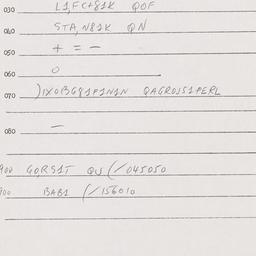 030 L1,FC+81K QOF
040 STA,N81K QN
050 + = -
060 0
070 )1X0BG81P1N1N QAGR0J51PERL
080 -
900 GORS1T QU(/045050
900 BAB1 (/156010